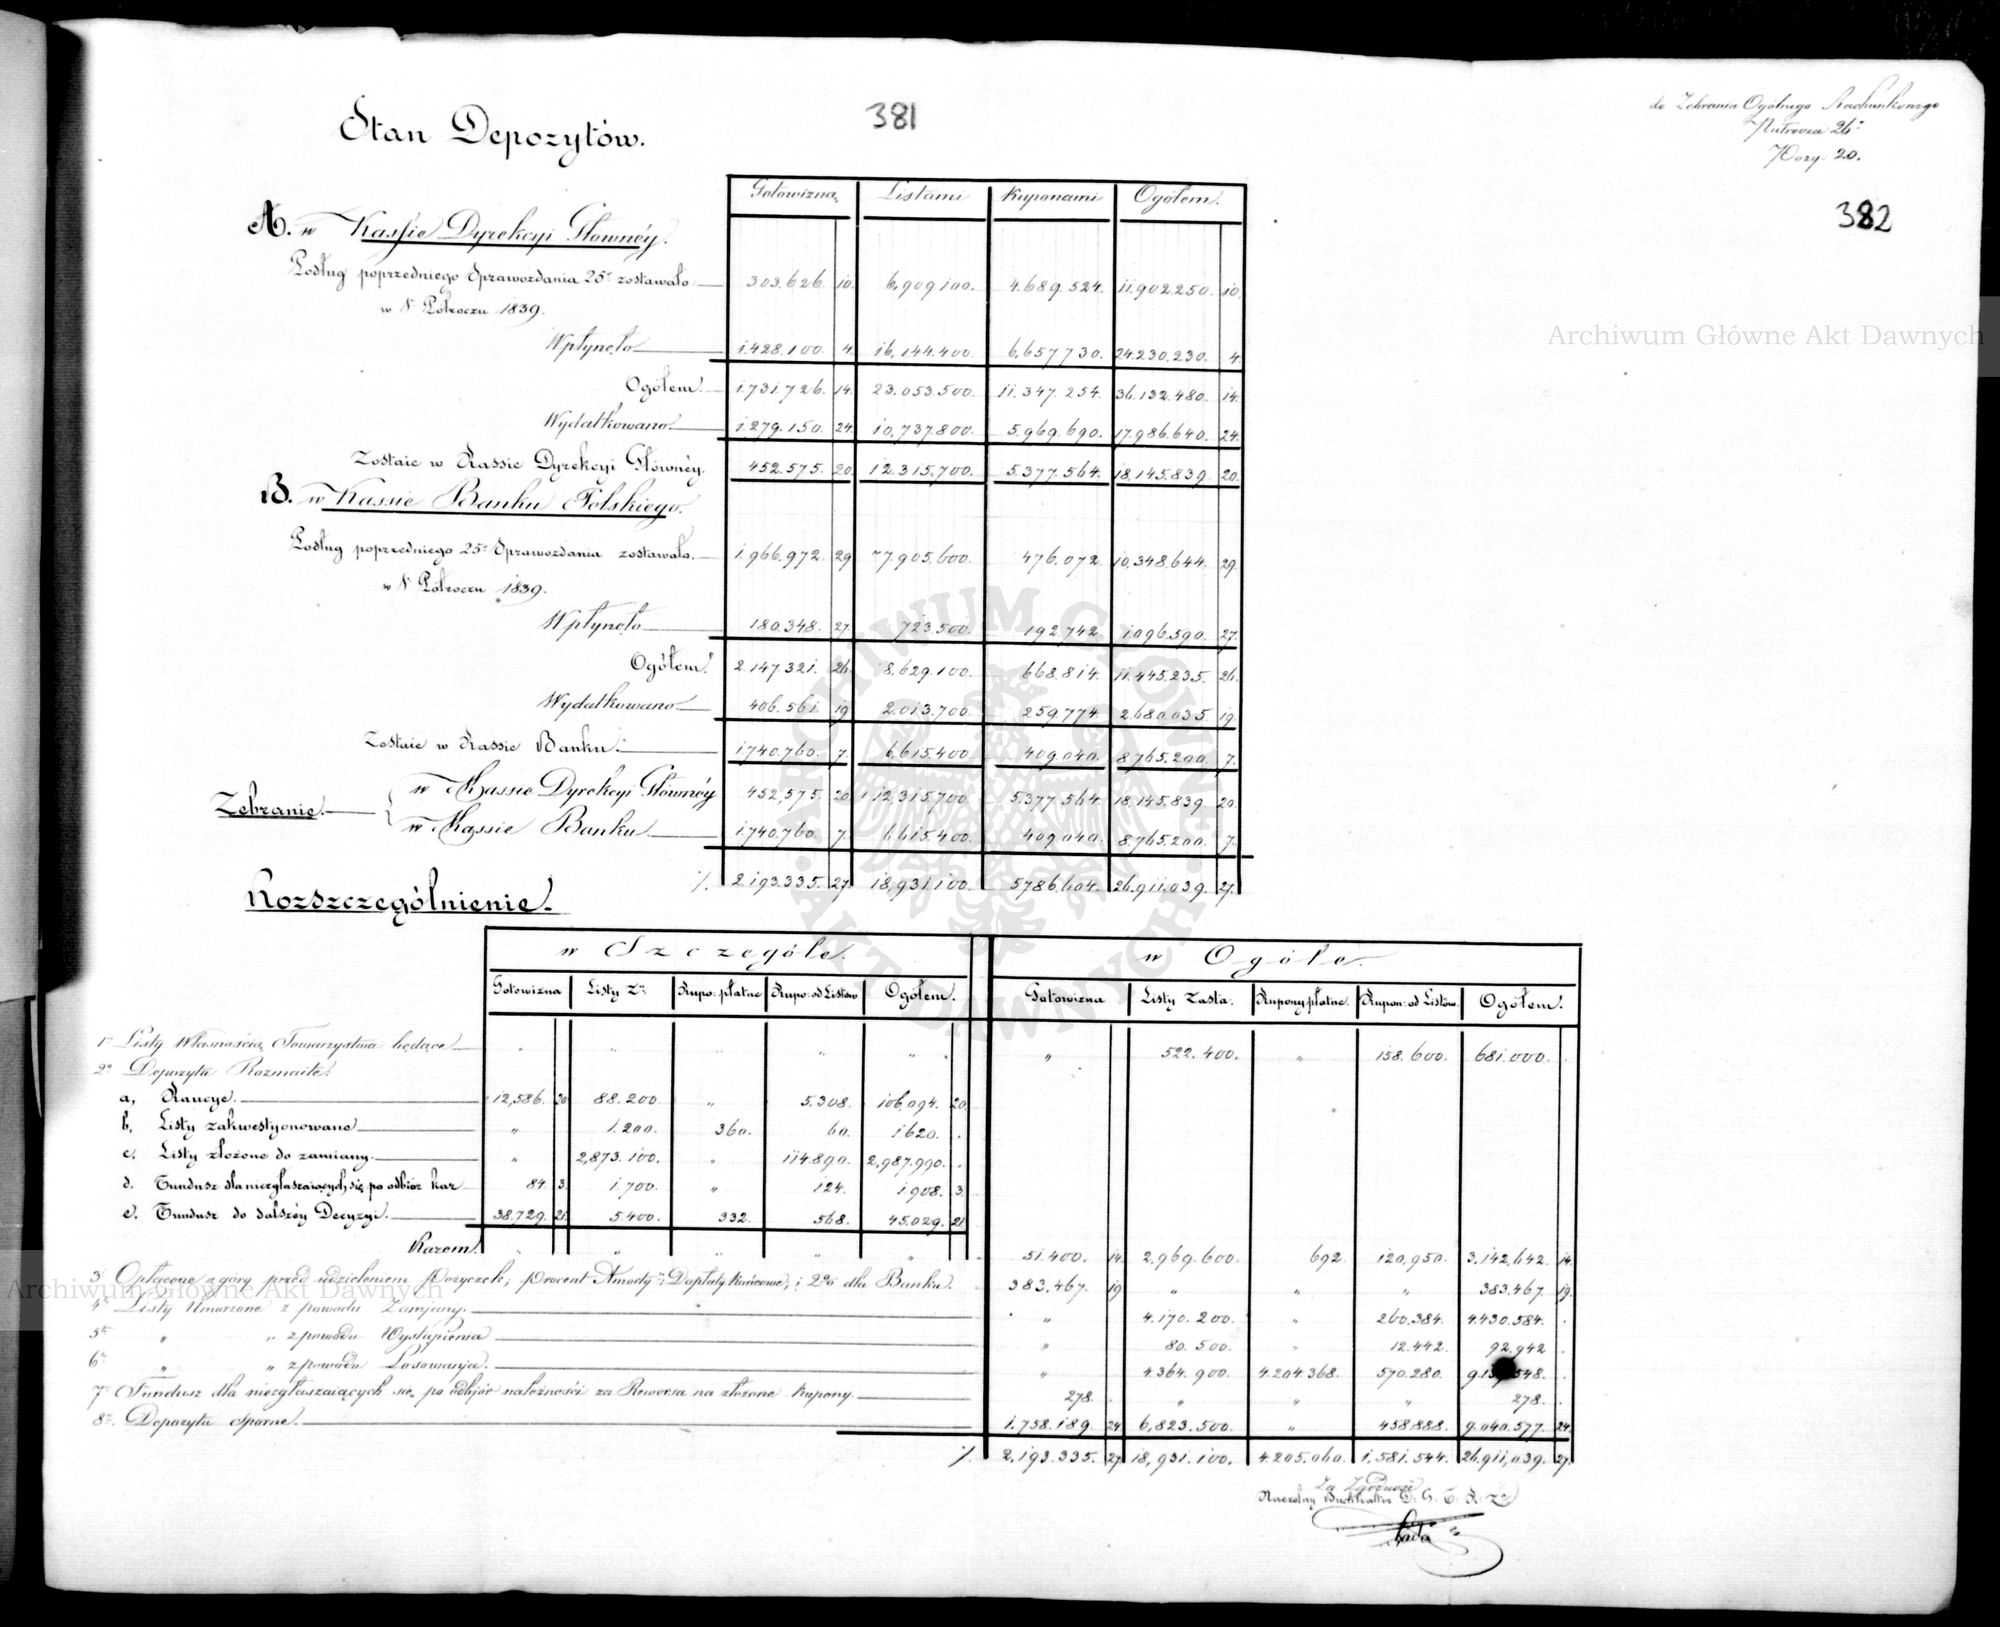 381
do Zebrania Ogólnego Rachunkowego
Półrocza 26°
Pozy: 20.
382
Stan Depozytów.
Gotowizna Listami Kuponami Ogółem.
A. w Kassie Dyrekcyi Głownéy.
Podług poprzedniego Sprawozdania 25° zostawało 303.626. 10. 6,909,100. 4.689.524. 11.902.250. 10.
w Półroczu 1839.
Wpłynęło 1.428.100. 4. 16,144.400. 6,657730. 24.230.230. 4.
Ogółem. 1.731.726. 14. 23.053.500. 11.347.254. 36.132.480. 14.
Wydatkowano 1.279.150. 24. 10,737800. 5.969.690. 17.986.640. 24.
Zostaie w Kassie Dyrekcyi Głównéy. 452.575. 20. 12.315.700. 5.377.564. 18,145.839. 20.
B. w Kassie Banku Polskiego.
Podług poprzedniego 25° Sprawozdania zostawało. 1.966.972. 29. 7.905.600. 476.072. 10,348.644. 29.
w Półroczu 1839.
Wpłynęło 180.348. 27. 723.500. 192.742. 1096.590. 27.
Ogółem 2.147.321. 26. 8.629.100. 668.814. 11.445.235. 26.
Wydatkowano 406.561. 19. 2.013.700. 259.774. 2.680.035. 19.
Zostaie w Kassie Banku. 1740.760. 7. 6,615.400. 409.040. 8.765.200. 7.
Zebranie. w Kassie Dyrekcyi Głównéy 452,575. 20. 12,315.700. 5.377.564. 18,145.839. 20.
w Kassie Banku 1.740.760. 7. 6.615.400. 409.040. 8.765.200. 7.
%. 2.193.335. 27. 18,931,100. 5786.604. 26.911.039. 27.
Rozszczególnienie.
w Szczególe. w Ogóle.
Gotowizna Listy Zne Kupo: płatne Kupo: od Listów Ogółem. Gotowizna Listy Zasta: Kupony płatne. Kupon: od Listów. Ogółem.
1° Listy Własnością Towarzystwa będące " " " " " " 522.400. " 158.600. 681.000.
2° Depozyta Rozmaite.
a, Kaucye. 12,586. 20. 88.200. " 5.308. 106,094. 20.
b, Listy zakwestyonowane " 1.200. 360. 60. 1620.
c. Listy złożone do zamiany. " 2,873.100. " 114.890. 2.987.990.
d. Fundusz dla niezgłaszaiących się po odbiór kar 84. 3. 1.700. " 124. 1.908. 3.
e. Fundusz do dalszéy Decyzyi. 38.729. 21. 5.400. 332. 568. 45.029. 21.
Razem. " " " " " 51.400. 14. 2,969.600. 692. 120,950. 3.142,642. 14.
3 Opłacone z góry przed udzieleniem Pożyczek, procent Amorty: Dopłaty kańcowe, i 2% dla Banku. 383.467. 19. " " " 383.467. 19.
4° Listy Umorzone z powodu Zamiany. " 4.170.200. " 260.384. 4.430.584.
5° " " z powodu Wystąpienia " 80.500. " 12.442. 92.942.
6° " " z powodu Losowania. " 4.364.900. 4.204.368. 570.280. 548.
7° Fundusz dla niezgłaszaiących się po odbiór należności za Rewersa na złożone Kupony. 278. " " " 278.
8° Depozyta Sporne. 1.758.189. 24. 6,823.500. " 458.888. 9.040.577. 24.
%. 2.193.335. 27. 18,931.100. 4.205.060. 1.581.544. 26.911,039. 27.
Za Zgodność
Naczelny Buchhalter D. G. T. K. Zo
Archiwum Główne Akt Dawnych
Archiwum Główne Akt Dawnych
ARCHIWUM GŁÓWNE AKT DAWNYCH